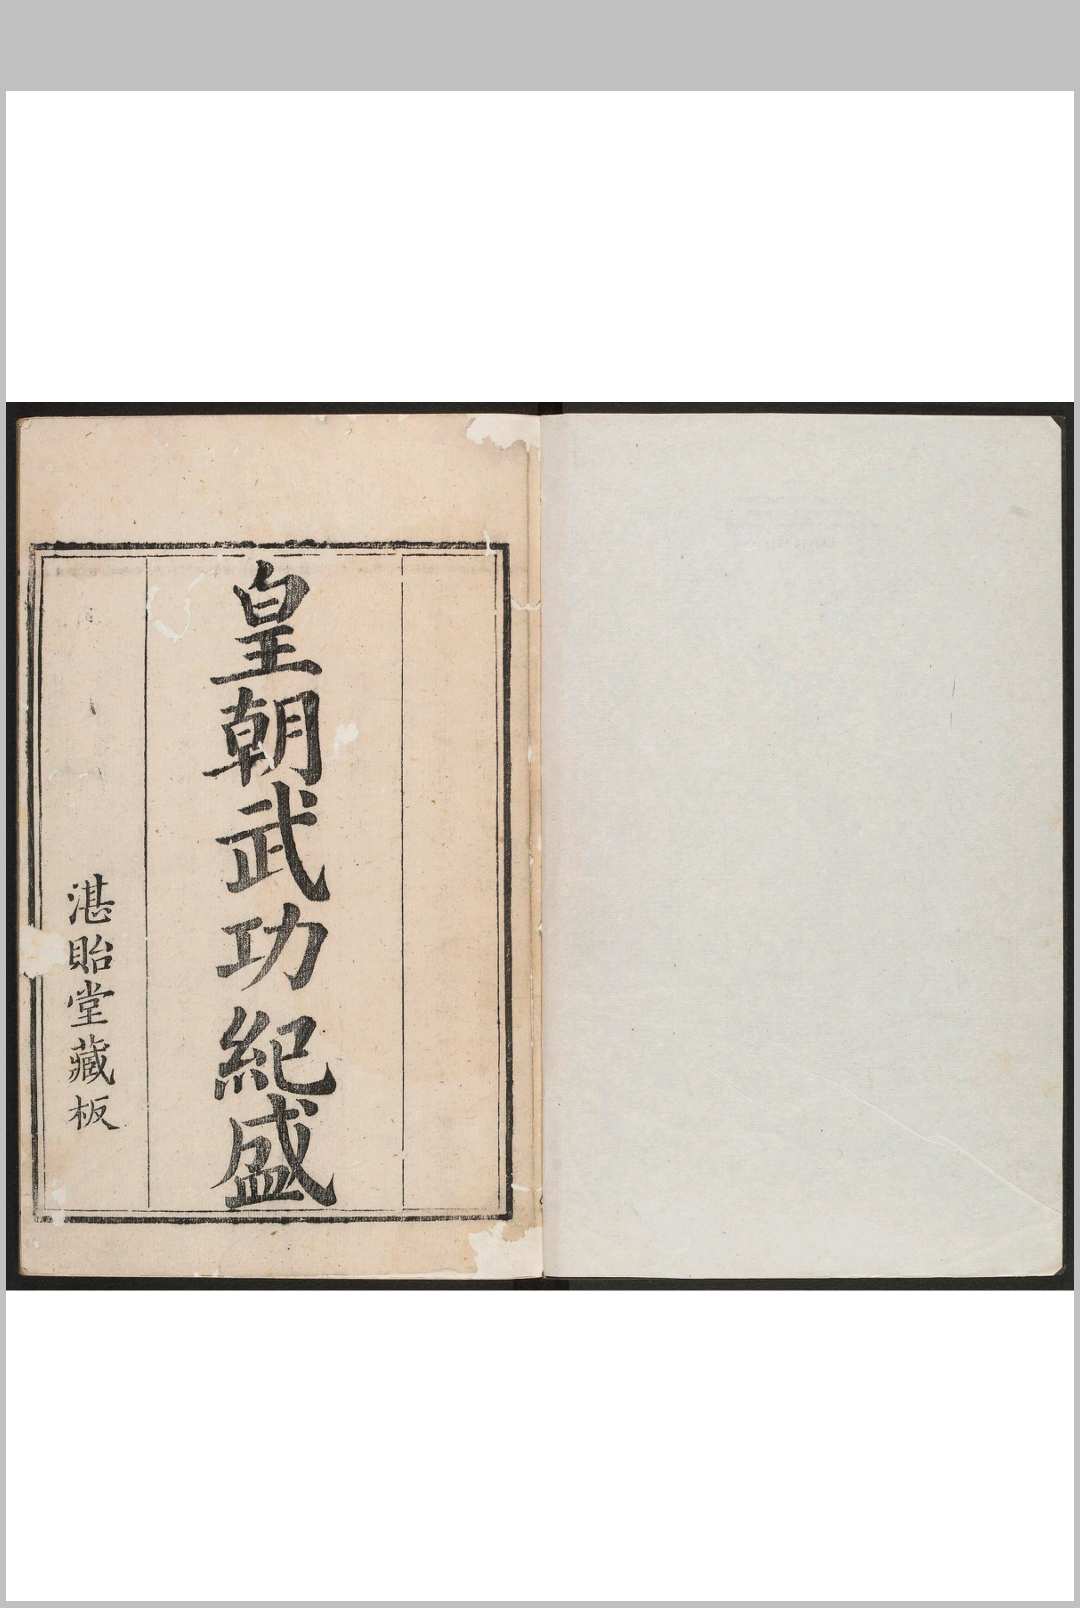 皇朝武功紀盛
湛貽堂藏板